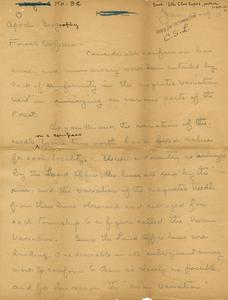 No. 32
Geography
Forest Officers:-
Considerable confusion has
arisen and unnecessary work been entailed by
lack of uniformity in the magnetic variation
used in surveying in various parts of the
Forest.
As you know, the variation of the
needle on a compass from true north has a
for each locality. Where a country is surveyed
by the Land Office the lines are run by the
sun, and the variation of the magnetic needle
from these lines observed and averaged for
each township to a figure called the mean
variation. Since the Land Office lines are
binding, it is desirable in all subsequent survey
work to conform to them as closely as possible,
and for this reason the mean variation